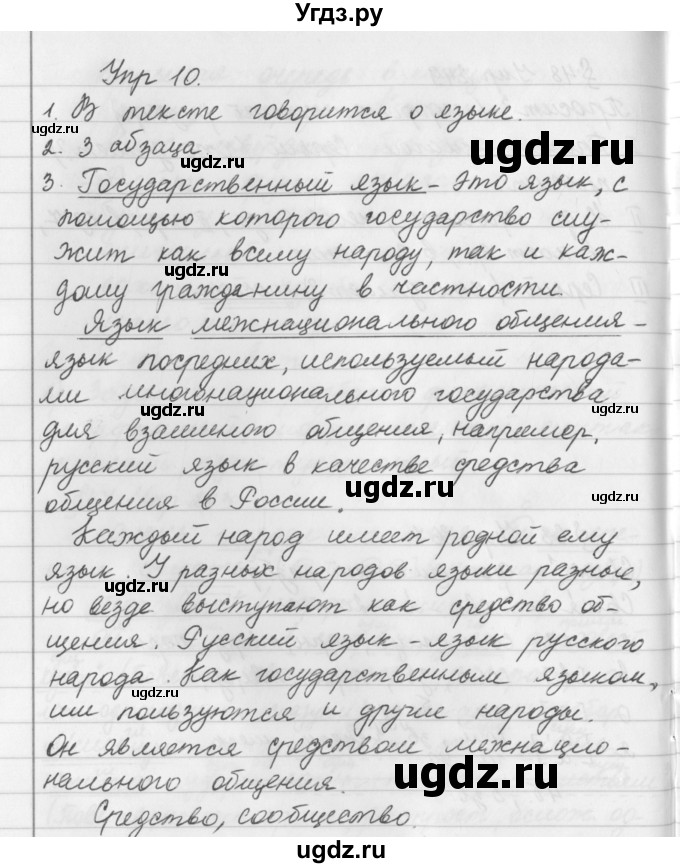 Угдз.ру
Упр 10.
1. В тексте говорится о языке.
2. 3 абзаца
3. Государственный язык - это язык, с
помощью которого государство слу-
жит как всему народу, так и каж-
дому гражданину в частности.
Язык межнационального общения -
язык посредних, используемый народа-
ми многонационального государства
для взаимного общения, например,
русский язык в качестве средства
общения в России.
Каждый народ имеет родной ему
язык. У разных народов языки разные,
но везде выступают как средство об-
щения. Русский язык - язык русского
народа. Как государственным языком,
им пользуются и другие народы.
Он является средством межнацио-
нального общения.
Средство, сообщество.
ugdz.ru
ugdz.ru
ugdz.ru
ugdz.ru
ugdz.ru
ugdz.ru
ugdz.ru
ugdz.ru
ugdz.ru
ugdz.ru
ugdz.ru
ugdz.ru
ugdz.ru
ugdz.ru